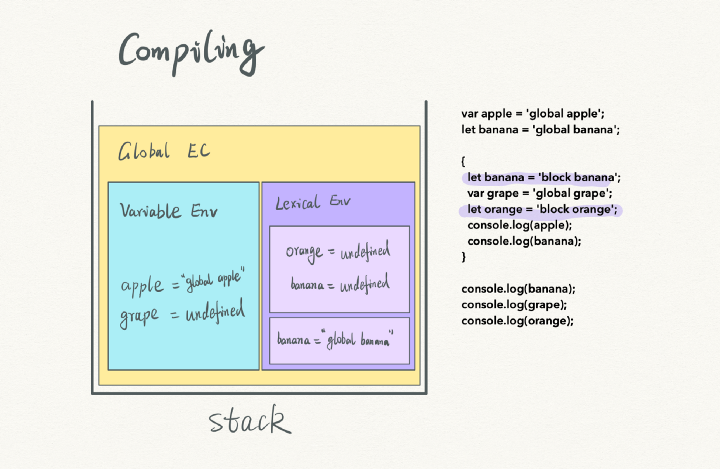 Compiling
Global EC
Variable Env
apple = "global apple"
grape = undefined
Lexical Env
orange = undefined
banana = undefined
banana = "global banana"
stack
var apple = 'global apple';
let banana = 'global banana';
{
let banana = 'block banana';
var grape = 'global grape';
let orange = 'block orange';
console.log(apple);
console.log(banana);
}
console.log(banana);
console.log(grape);
console.log(orange);